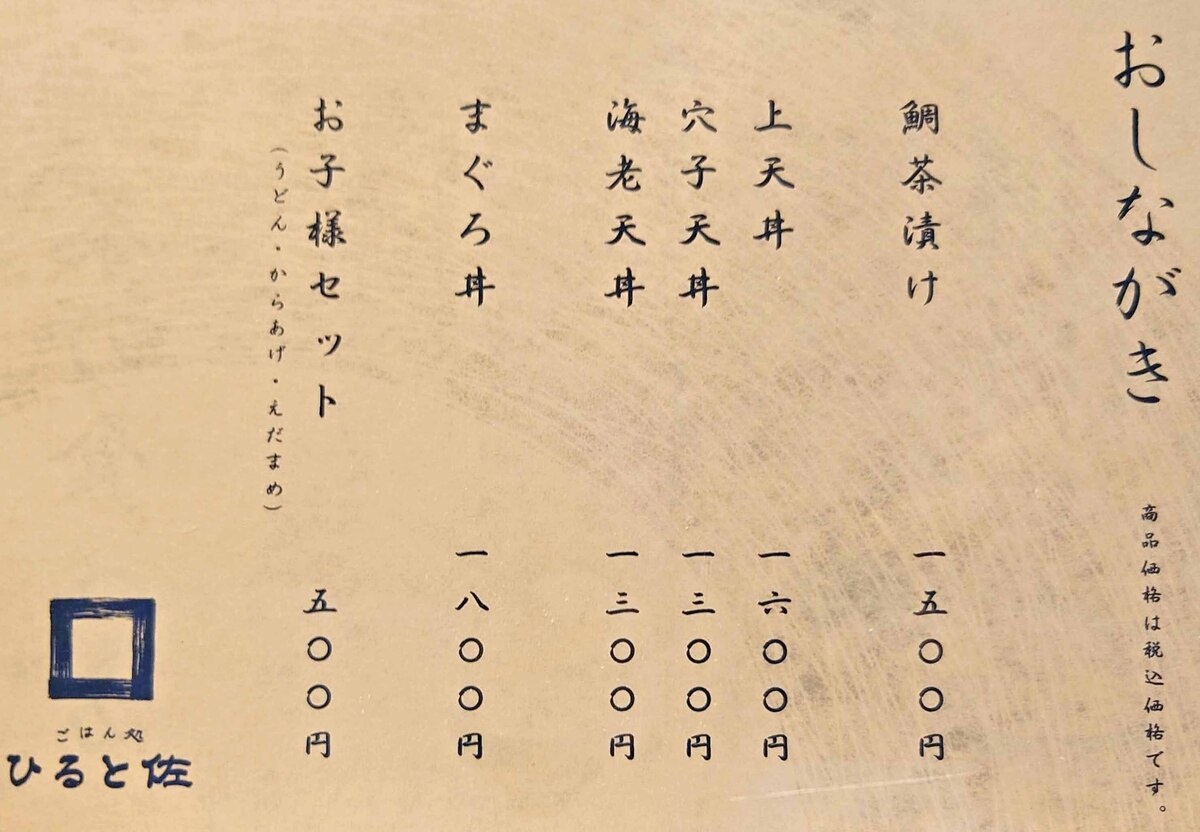 おしながき
商品価格は税込価格です。
鯛茶漬け 一五〇〇円
上天丼 一六〇〇円
穴子天丼 一三〇〇円
海老天丼 一三〇〇円
まぐろ丼 一八〇〇円
お子様セット 五〇〇円
(うどん・からあげ・えだまめ)
ごはん処
ひると佐